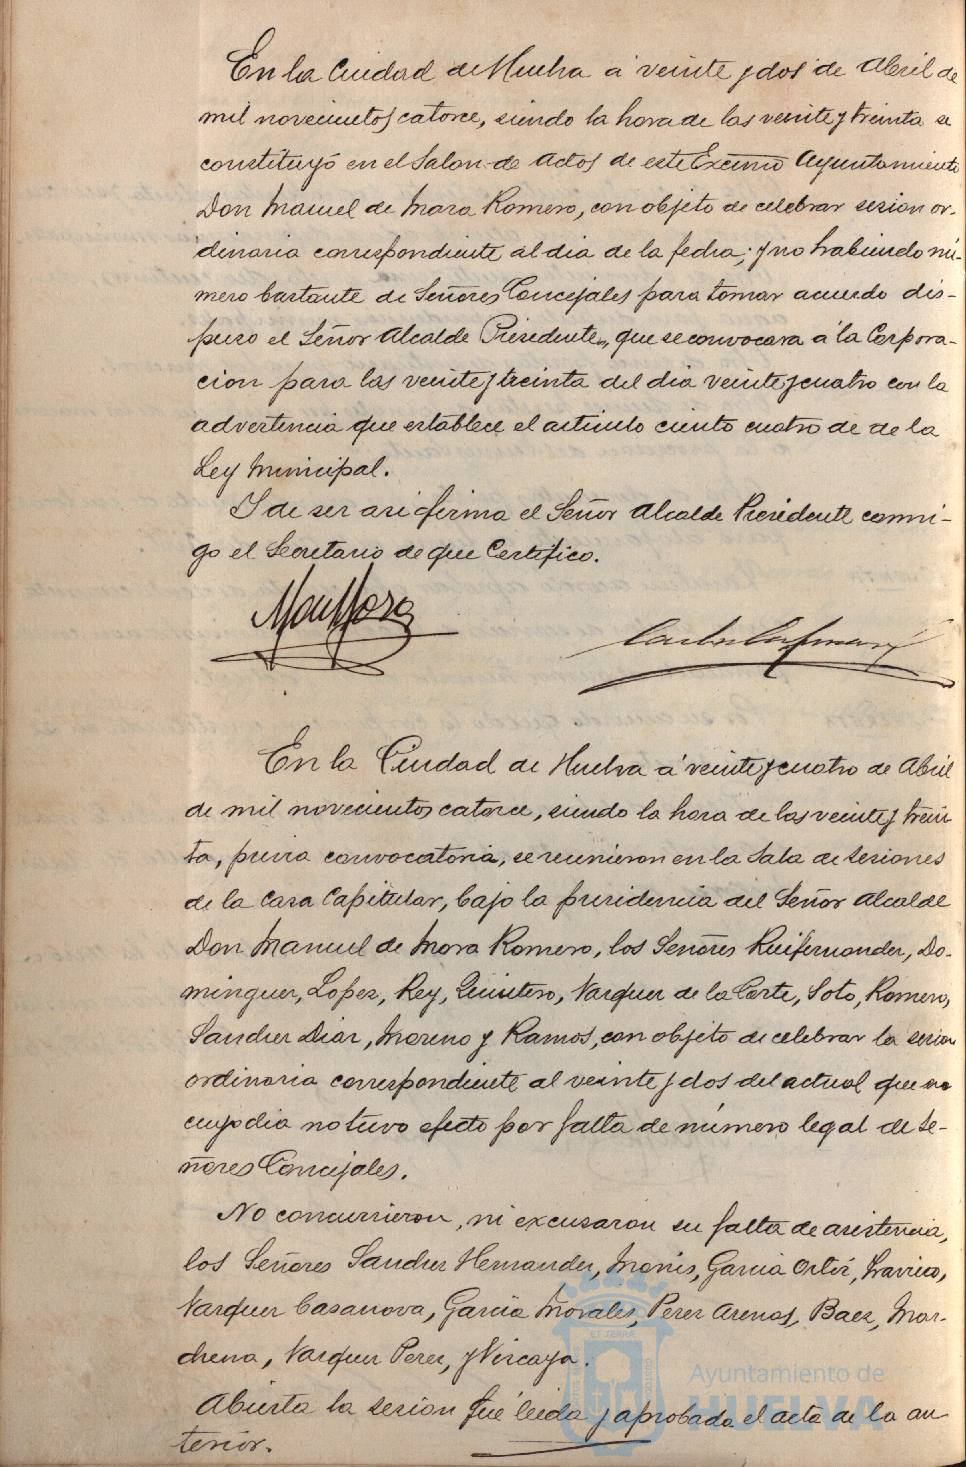 En la Ciudad de Huelva a veinte y dos de Abril de
mil novecientos catorce, siendo la hora de las veinte y treinta se
constituyó en el Salon de actos de este Excmo Ayuntamiento
Don Manuel de Mora Romero, con objeto de celebrar sesion or-
dinaria correspondiente al dia de la fecha; y no habiendo nú-
mero bastante de Señores Concejales para tomar acuerdo dis-
puso el Señor Alcalde Presidente, que se convocara á la Corpora-
cion para las veinte y treinta del dia veinte y cuatro con la
advertencia que establece el articulo ciento cuatro de de la
Ley Municipal.
Y de ser asi firma el Señor Alcalde Presidente conmi-
go el Secretario de que Certifico.
Man Mora
En la Ciudad de Huelva á veinte y cuatro de Abril
de mil novecientos catorce, siendo la hora de las veinte y trein
ta, previa convocatoria, se reunieron en la Sala de sesiones
de la Casa Capitular, bajo la presidencia del Señor Alcalde
Don Manuel de Mora Romero, los Señores Ruifernandez, Do-
minguez, Lopez, Rey, Quintero, Vazquez de la Corte, Soto, Romero,
Sanchez Diaz, Moreno y Ramos, con objeto de celebrar la sesion
ordinaria correspondiente al veinte y dos del actual que en
cuyo dia no tuvo efecto por falta de número legal de Se-
ñores Concejales.
No concurrieron, ni excusaron su falta de asistencia,
los Señores Sanchez Hernandez, Monis, Garcia Ortiz,
Vazquez Casanova, Garcia Morales, Perez Arenas, Baez, Mar-
chena, Vazquez Perez, y Vizcaya.
Abierta la sesion fué leida y aprobada el acta de la an
terior.
Ayuntamiento de
HUELVA